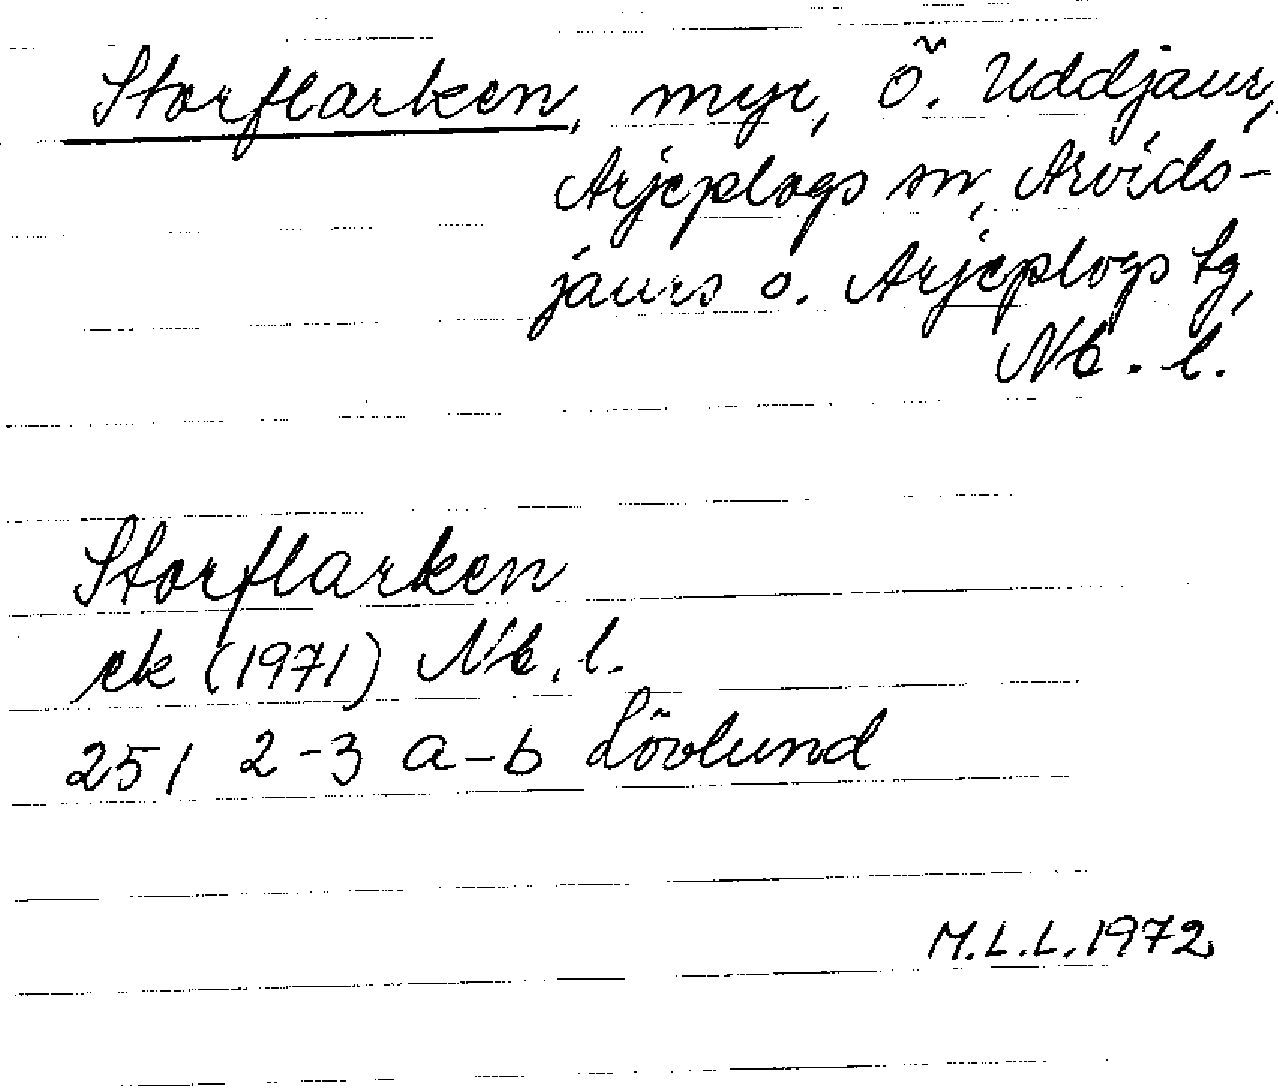 Storflarken, myr, Ö. Uddjaur,
Arjeplogs sn, Arvids-
jaurs o. Arjeplogs tg,
Nb. l.
Storflarken
ek (1971) Nb. l.
25 I 2-3 a-b Lövlund
M.L.L. 1972